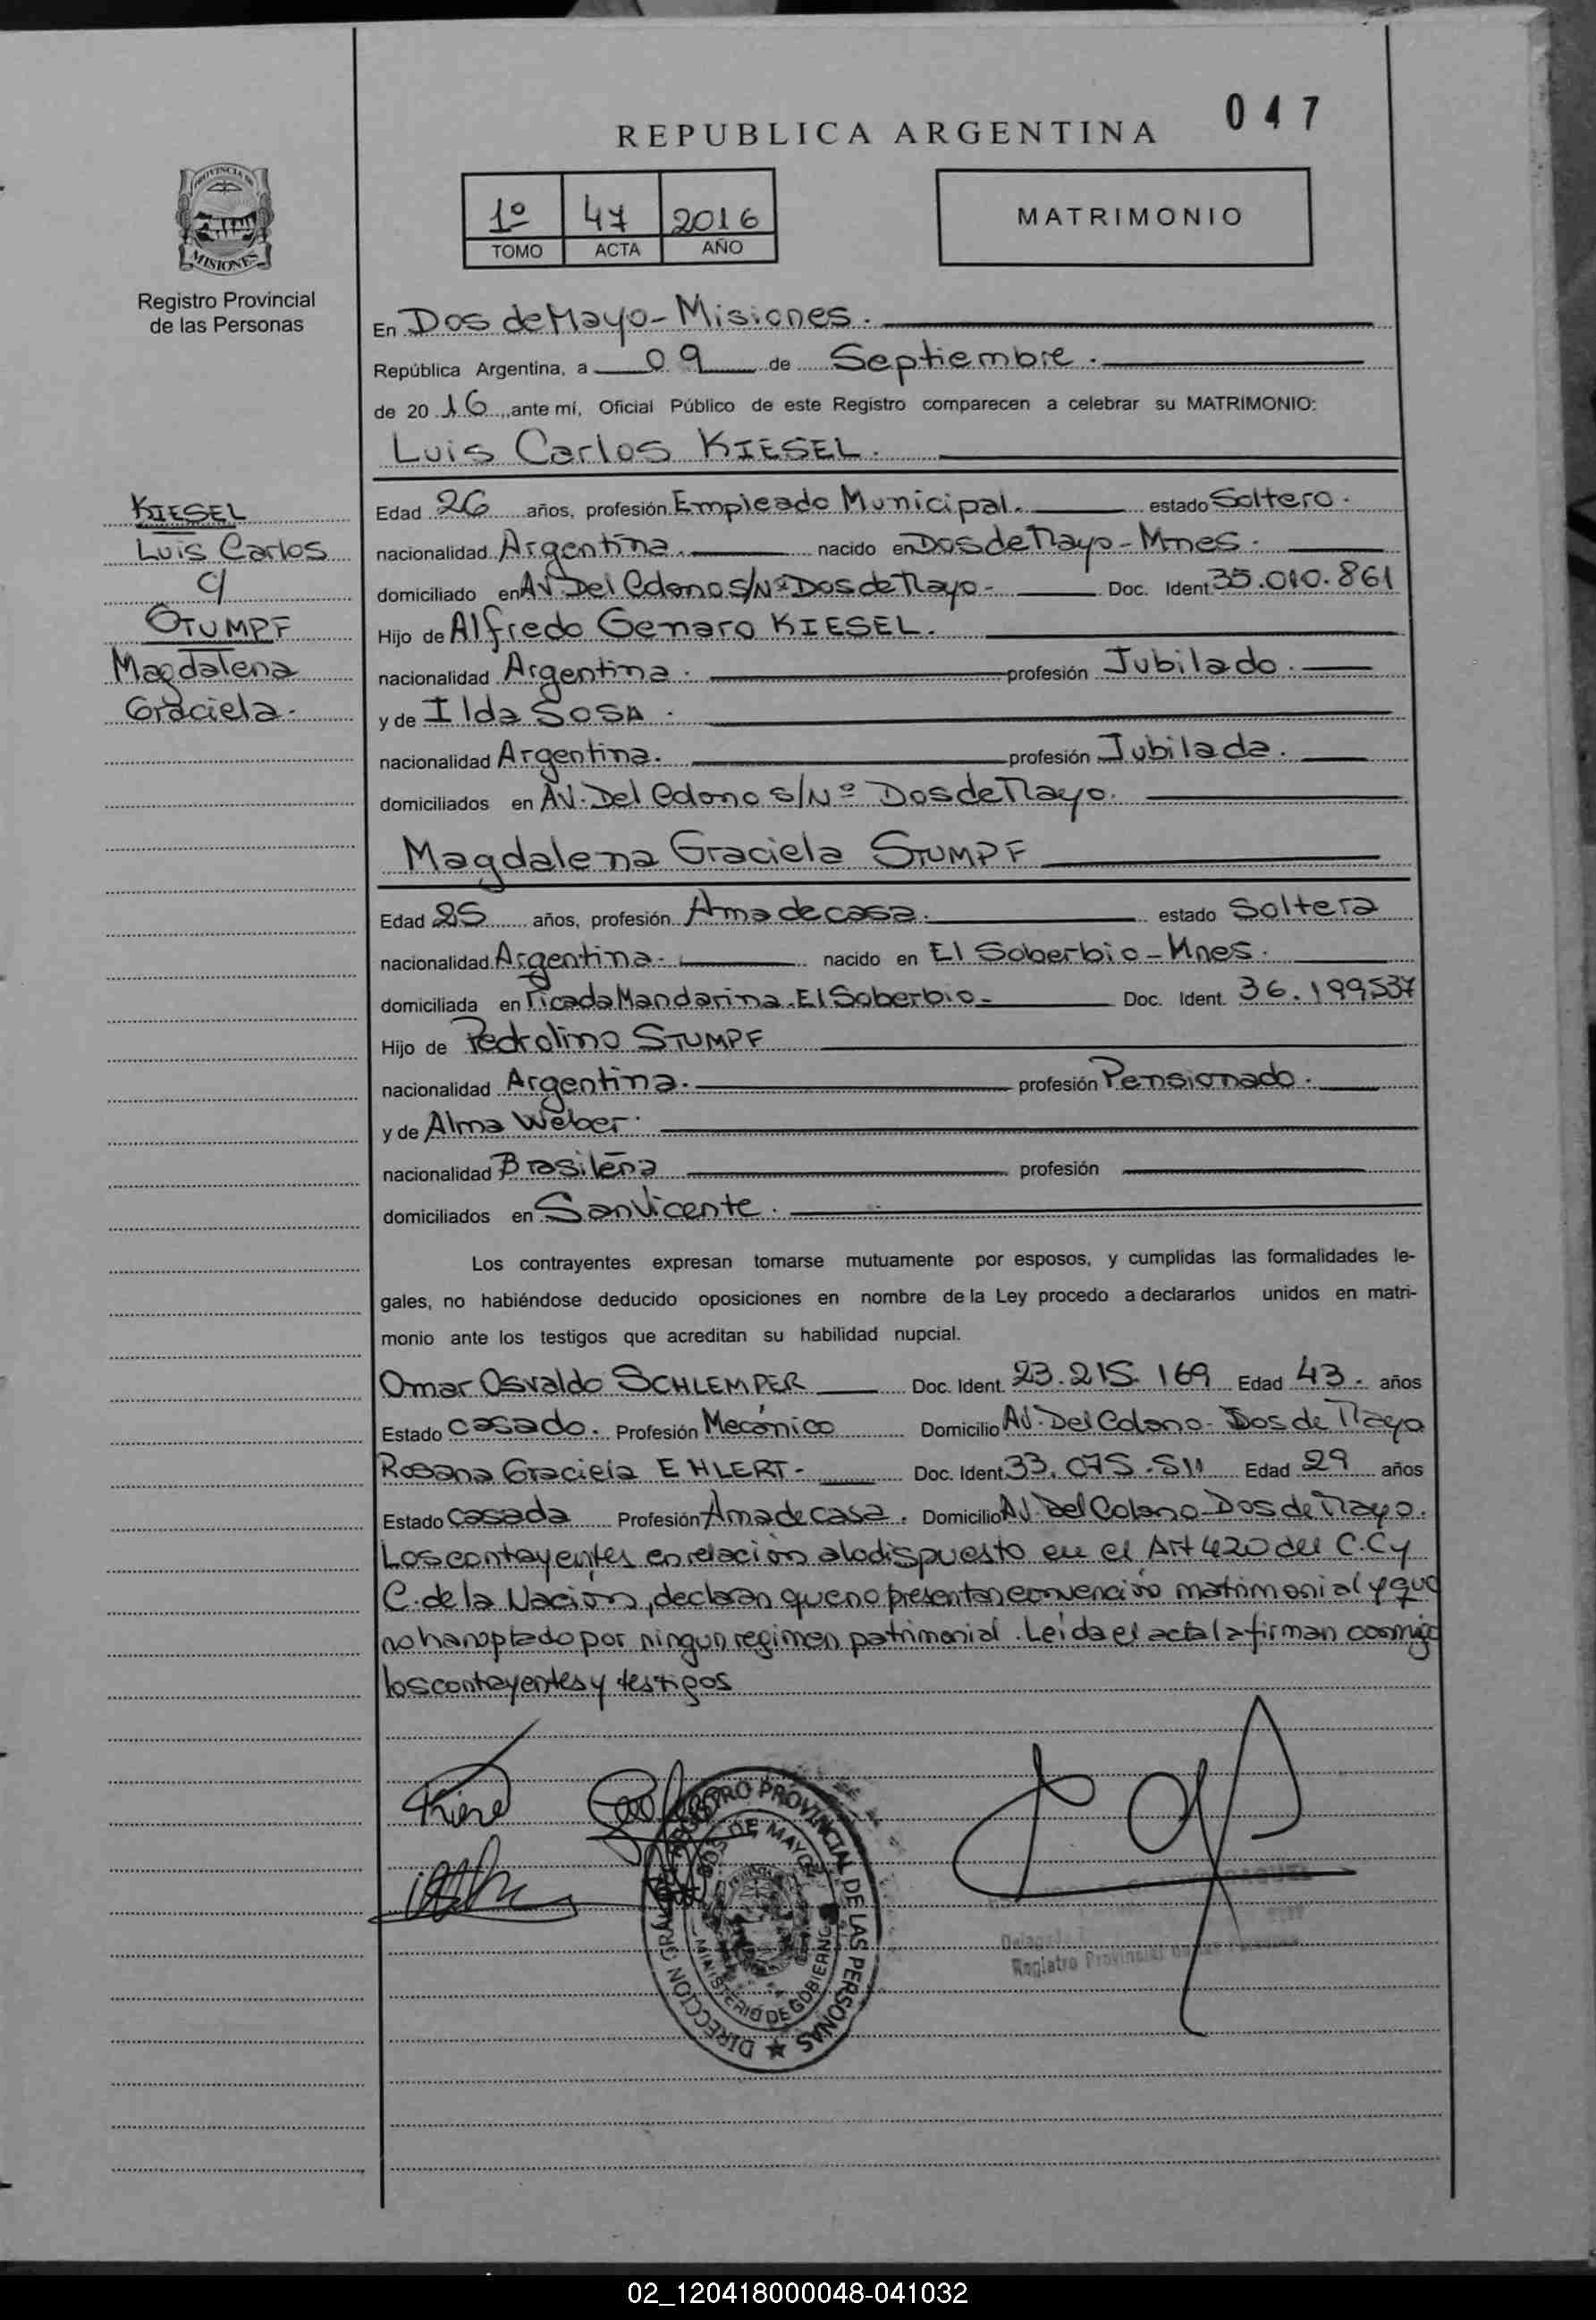 047
REPUBLICA ARGENTINA
PROVINCIA DE
MISIONES
Registro Provincial
de las Personas
1º 47 2016
TOMO ACTA AÑO
MATRIMONIO
En Dos de Mayo - Misiones.
República Argentina, a 09 de Septiembre.
de 2016, ante mí, Oficial Público de este Registro comparecen a celebrar su MATRIMONIO:
Luis Carlos KIESEL.
KIESEL
Luis Carlos
c/
STUMPF
Magdalena
Graciela.
Edad 26 años, profesión Empleado Municipal. estado Soltero.
nacionalidad Argentina. nacido en Dos de Mayo - Mnes.
domiciliado en AV. Del Colono s/Nº Dos de Mayo - Doc. Ident. 35.010.861
Hijo de Alfredo Genaro KIESEL.
nacionalidad Argentina. profesión Jubilado.
y de Ilda SOSA.
nacionalidad Argentina. profesión Jubilada.
domiciliados en AV. Del Colono s/Nº Dos de Mayo.
Magdalena Graciela STUMPF
Edad 25 años, profesión Ama de casa. estado Soltera
nacionalidad Argentina. nacido en El Soberbio - Mnes.
domiciliada en Picada Mandarina. El Soberbio - Doc. Ident. 36.199537
Hijo de Pedrolino STUMPF
nacionalidad Argentina. profesión Pensionado.
y de Alma Weber.
nacionalidad Brasileña profesión
domiciliados en San Vicente.
Los contrayentes expresan tomarse mutuamente por esposos, y cumplidas las formalidades le-
gales, no habiéndose deducido oposiciones en nombre de la Ley procedo a declararlos unidos en matri-
monio ante los testigos que acreditan su habilidad nupcial.
Omar Osvaldo SCHLEMPER Doc. Ident. 23.215.169 Edad 43. años
Estado casado. Profesión Mecánico Domicilio AV. Del Colono - Dos de Mayo
Rosana Graciela EHLERT - Doc. Ident. 33.075.511 Edad 29 años
Estado casada Profesión Ama de casa. Domicilio AV. Del Colono - Dos de Mayo.
Los contayentes en relación a lo dispuesto en el Art 420 del C.C y
C. de la Nación, declaran que no presentan convención matrimonial y que
no han optado por ningun regimen patrimonial. Leída el acta la firman conmigo
los contayentes y testigos
DIRECCION GRAL REGISTRO PROVINCIAL DE LAS PERSONAS
DOS DE MAYO
MINISTERIO DE GOBIERNO
Registro Provincial
02_120418000048-041032